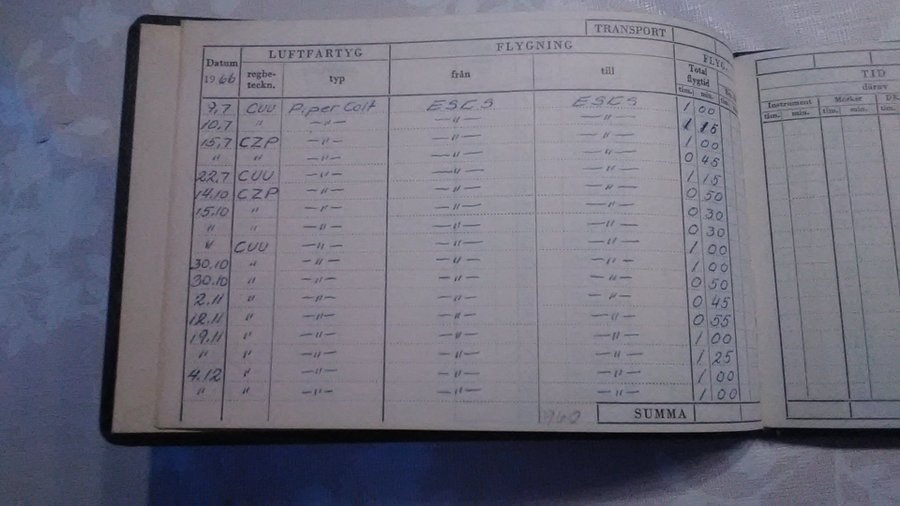 TRANSPORT
LUFTFARTYG FLYGNING FLYG
Datum 1966 regbe-teckn. typ från till Total flygtid
tim. min.
9,7 CUU Piper Colt ESCS ESCS 1 00
10,7 " —"— —"— —"— 1 15
15,7 CZP —"— —"— —"— 1 00
" " —"— —"— —"— 0 45
22,7 CUU —"— —"— —"— 1 15
14.10 CZP —"— —"— —"— 0 50
15.10 " —"— —"— —"— 0 30
" " —"— —"— —"— 0 30
" CUU —"— —"— —"— 1 00
30.10 " —"— —"— —"— 1 00
30.10 " —"— —"— —"— 0 50
2.11 " —"— —"— —"— 0 45
12.11 " —"— —"— —"— 0 55
19.11 " —"— —"— —"— 1 00
" " —"— —"— —"— 1 25
4.12 " —"— —"— —"— 1 00
" " —"— —"— —"— 1 00
SUMMA
TID
därav
Instrument Mörker
tim. min. tim. min. tim.